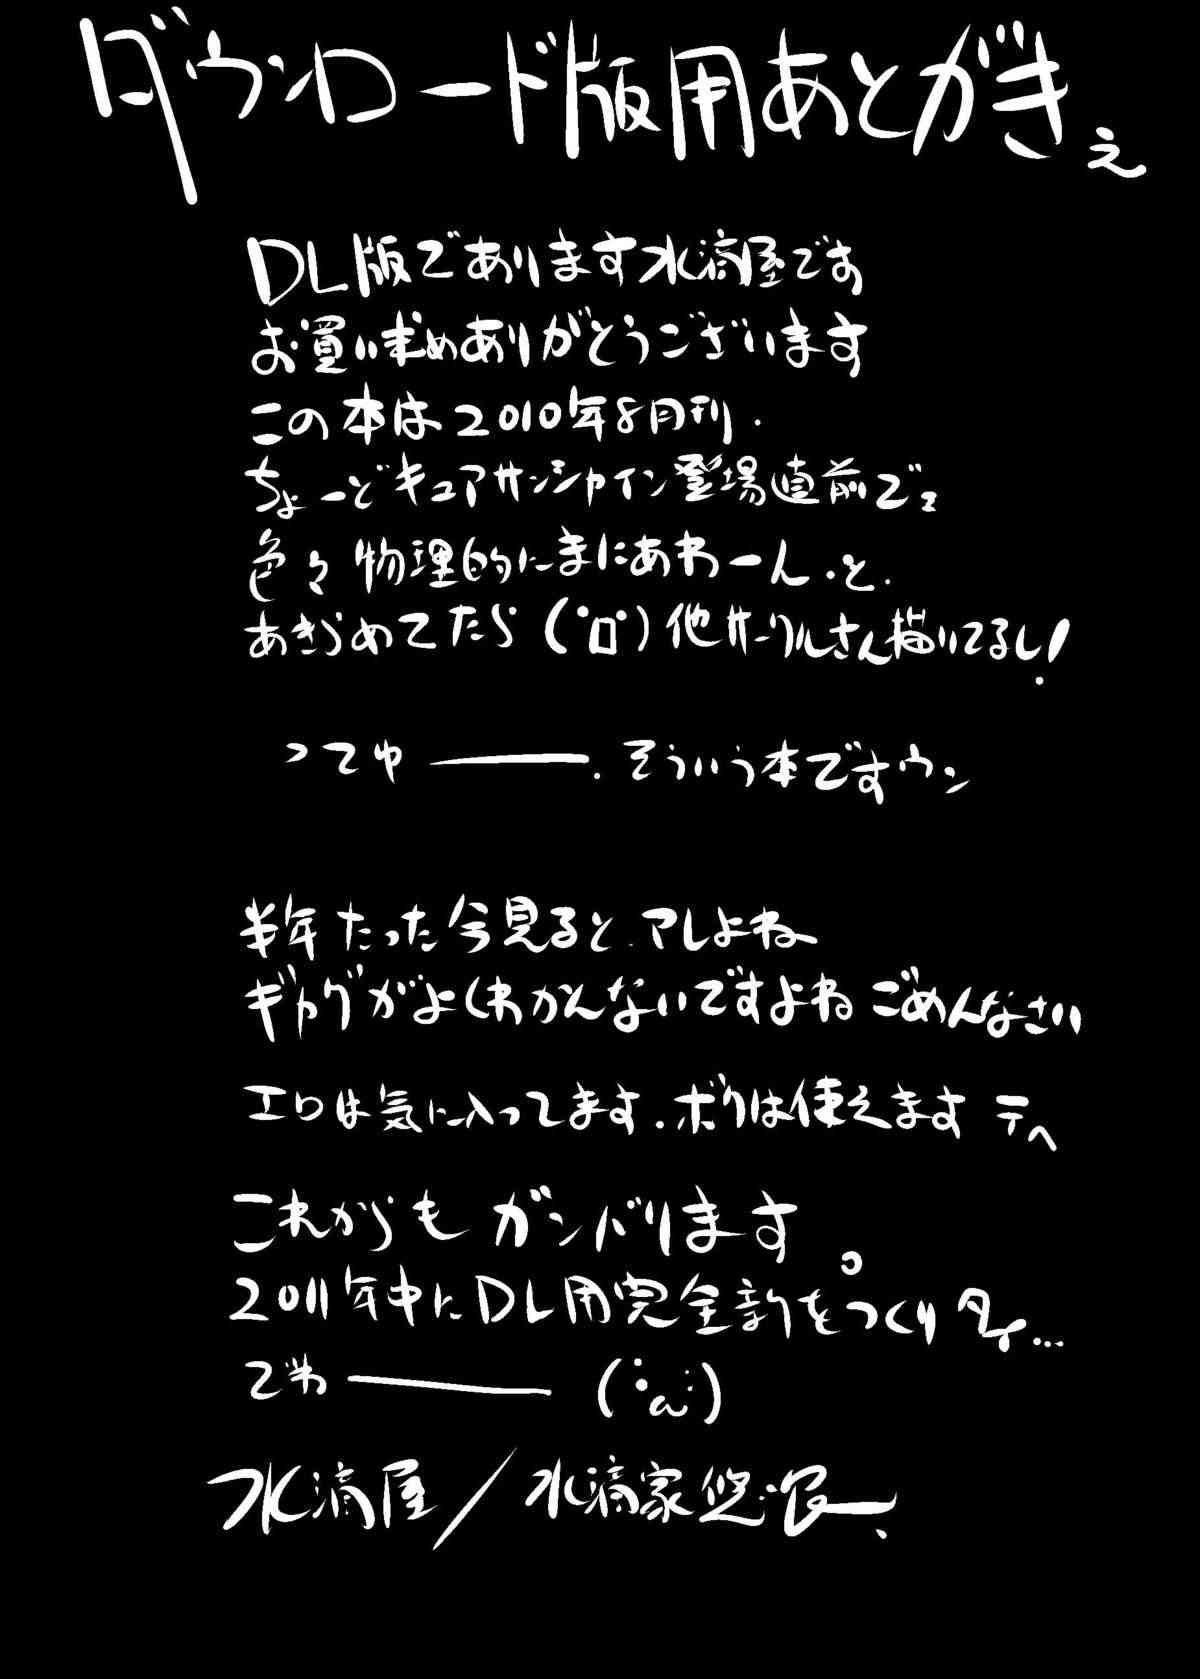 ダウンロード版用あとがきぇ
DL版であります水滴屋です
お買い求めありがとうございます
この本は2010年8月刊.
ちょーどキュアサンシャイン登場直前でェ
色々物理的にまにあわーん.と.
あきらめてたら(゚ロ゚)他サークルさん描いてるし!
つてゆ――.そういう本ですウン
半年たった今見ると.アレよね
ギャグがよくわかんないですよねごめんなさい
エロは気に入ってます.ボクは使えますテヘ
これからもガンバります。
2011年中にDL用完全新をつくりタイ...
でわ――
水滴屋/水滴家